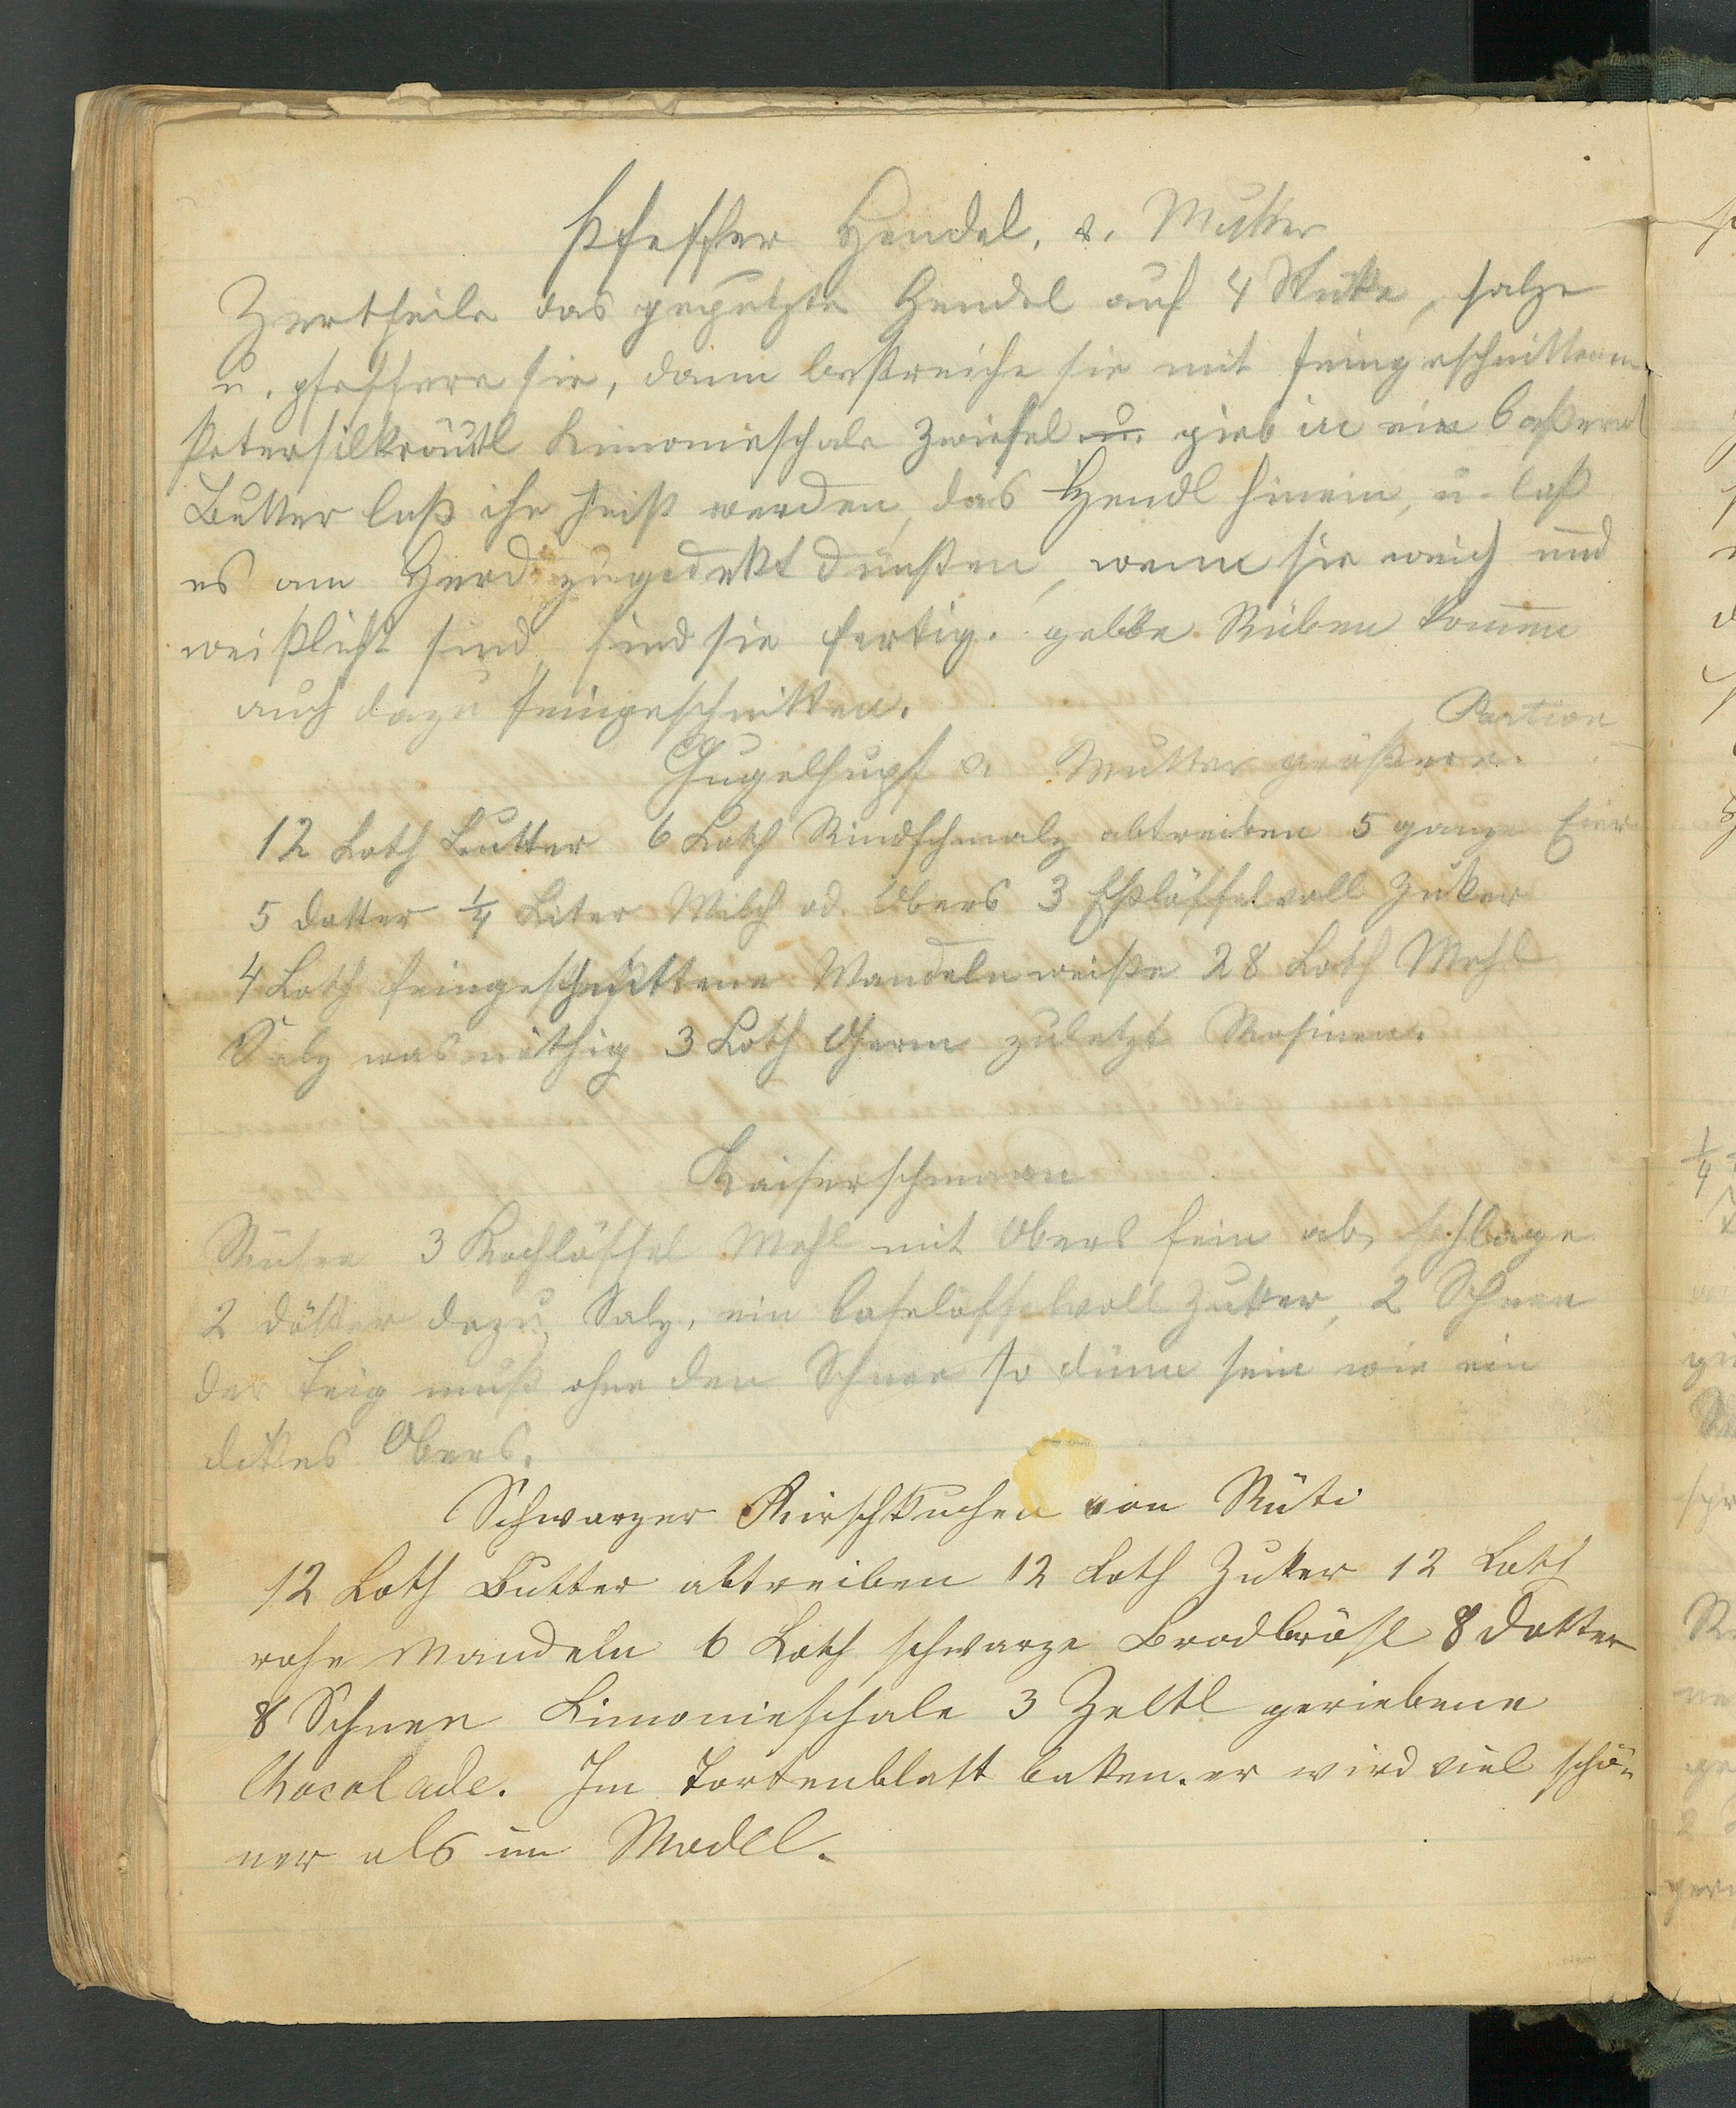 Pfeffer Hendel, v. Mutter
Zertheile das geputzte Hendel auf 4 Stüke, salze
u. pfeffere sie, dann bestreiche sie mit feingeschnittenem
Petersilkräutl Limonieschale Zwiefel u. gieb in ein Casserol
Butter laß ihn heiß werden, das Hendl hinein, u. laß
es am Herd zugedekt dünsten, wenn sie weich und
weißlicht sind, sind sie fertig. gelbe Rüben kommen
auch dazu feingeschnitten.
Partion
Gugelhupf v. Mutter größere.
12 Loth Butter 6 Loth Rindschmalz abtreiben 5 ganze Eier
5 Dotter 1/4 Liter Milch od. Obers 3 Eßlöffelvoll Zuker
4 Loth feingeschnittene Mandeln weiße 28 Loth Mehl
Salz was nöthig 3 Loth Germ zuletzt Rosinen.
Kaiserschmarn
Rühre 3 Kochlöffel Mehl mit Obers fein ab, schlage
2 Dötter dazu, Salz, ein Caffelöffelvoll Zuker, 2 Schnee
der Teig muß ohne den Schnee so dünn sein wie ein
dikes Obers.
Schwarzer Kirschkuchen von Rüti
12 Loth Butter abtreiben 12 Loth Zuker 12 Loth
rohe Mandeln 6 Loth schwarze Brodbrösl 8 Dotter
8 Schnee Limonieschale 3 Zeltl geriebene
Chocolade. Im Tortenblatt baken. er wird viel schö-
ner als im Model.